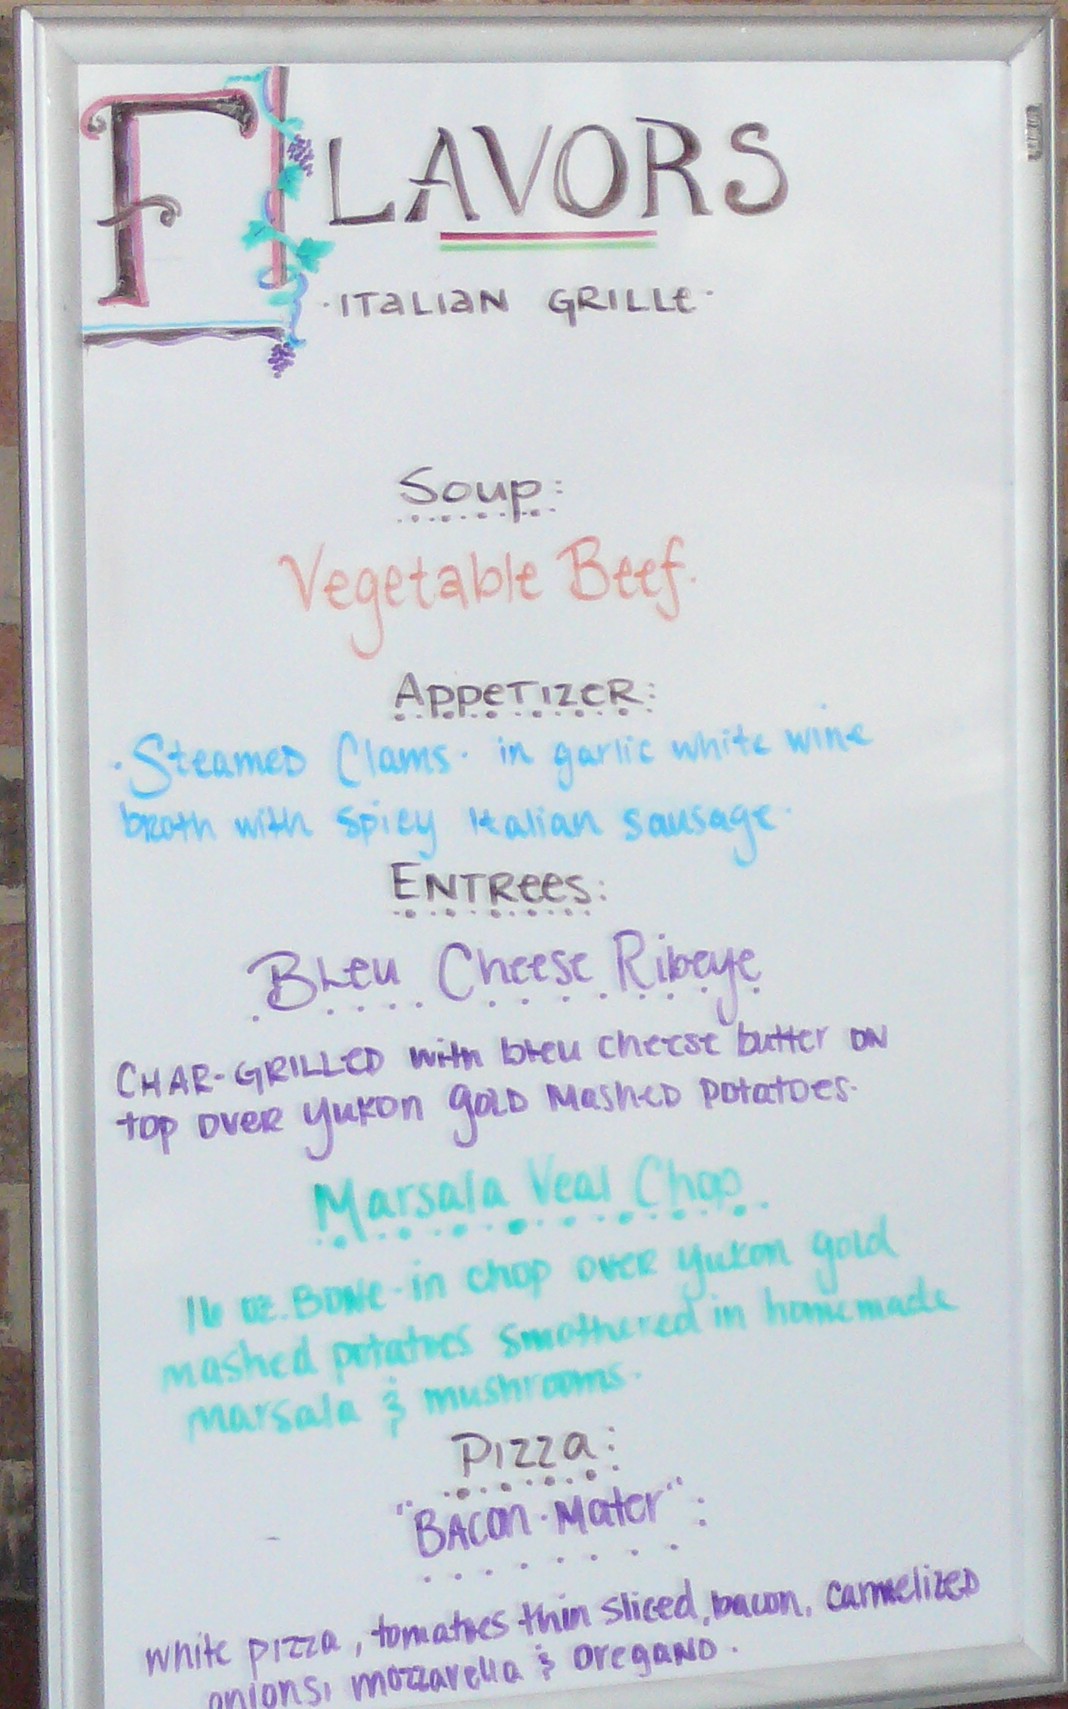 FLAVORS
·ITALIAN GRILLE·
Soup:
Vegetable Beef.
APPETIZER:
·STEAMED Clams· in garlic white wine
broth with spicy Italian sausage·
ENTREES:
Bleu Cheese Ribeye
CHAR-GRILLED with bleu cheese butter ON
top over yukon gold mashed potatoes.
Marsala Veal Chop
16 oz. BONE-in chop over yukon gold
mashed potatoes smothered in homemade
marsala & mushrooms.
Pizza:
"BACON-Mater":
white pizza, tomatoes thin sliced, bacon, carmelized
onions, mozzarella & oregano.